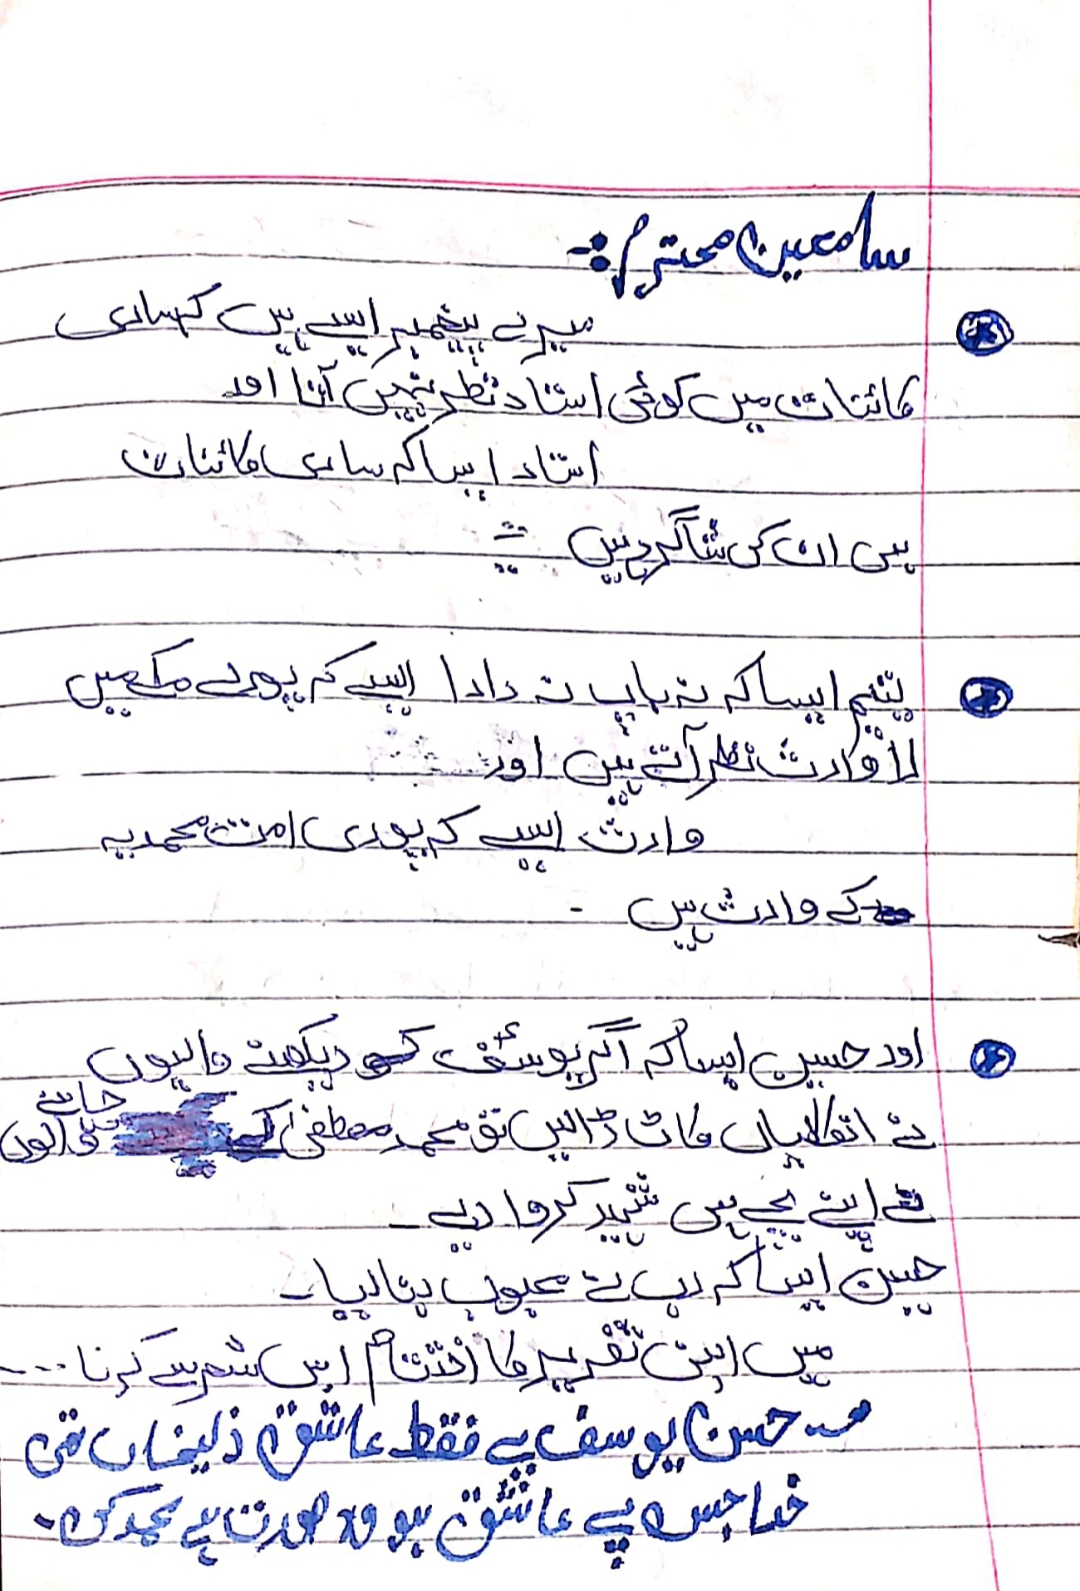 سامعین محترم :-
میرے پیغمبر ایسے ہیں کہ ساری
کائنات میں کوئی استاد نظر نہیں آتا اور
استاد ایسا کہ ساری کائنات
ہی ان کی شاگرد ہیں
یتیم ایسا کہ نہ باپ نہ دادا ایسے کہ پورے مکے میں
لا وارث نظر آتے ہیں اور
وارث ایسے کہ پوری امت محمدیہ
کے وارث ہیں -
اور حسین ایسا کہ اگر یوسفؑ کو دیکھنے والیوں
نے انگلیاں کاٹ ڈالیں تو محمد مصطفیٰ کے چاہنے والوں
نے اپنے بچے ہی شہید کروا دیے -
حسین ایسا کہ رب نے محبوب بنا دیا -
میں اپنی تقریر کا اختتام اس شعر سے کرنا ....
حسن یوسف پے فقط عاشق ذلیخاں تھی
خدا جس پے عاشق ہو وہ صورت ہے محمد کی -